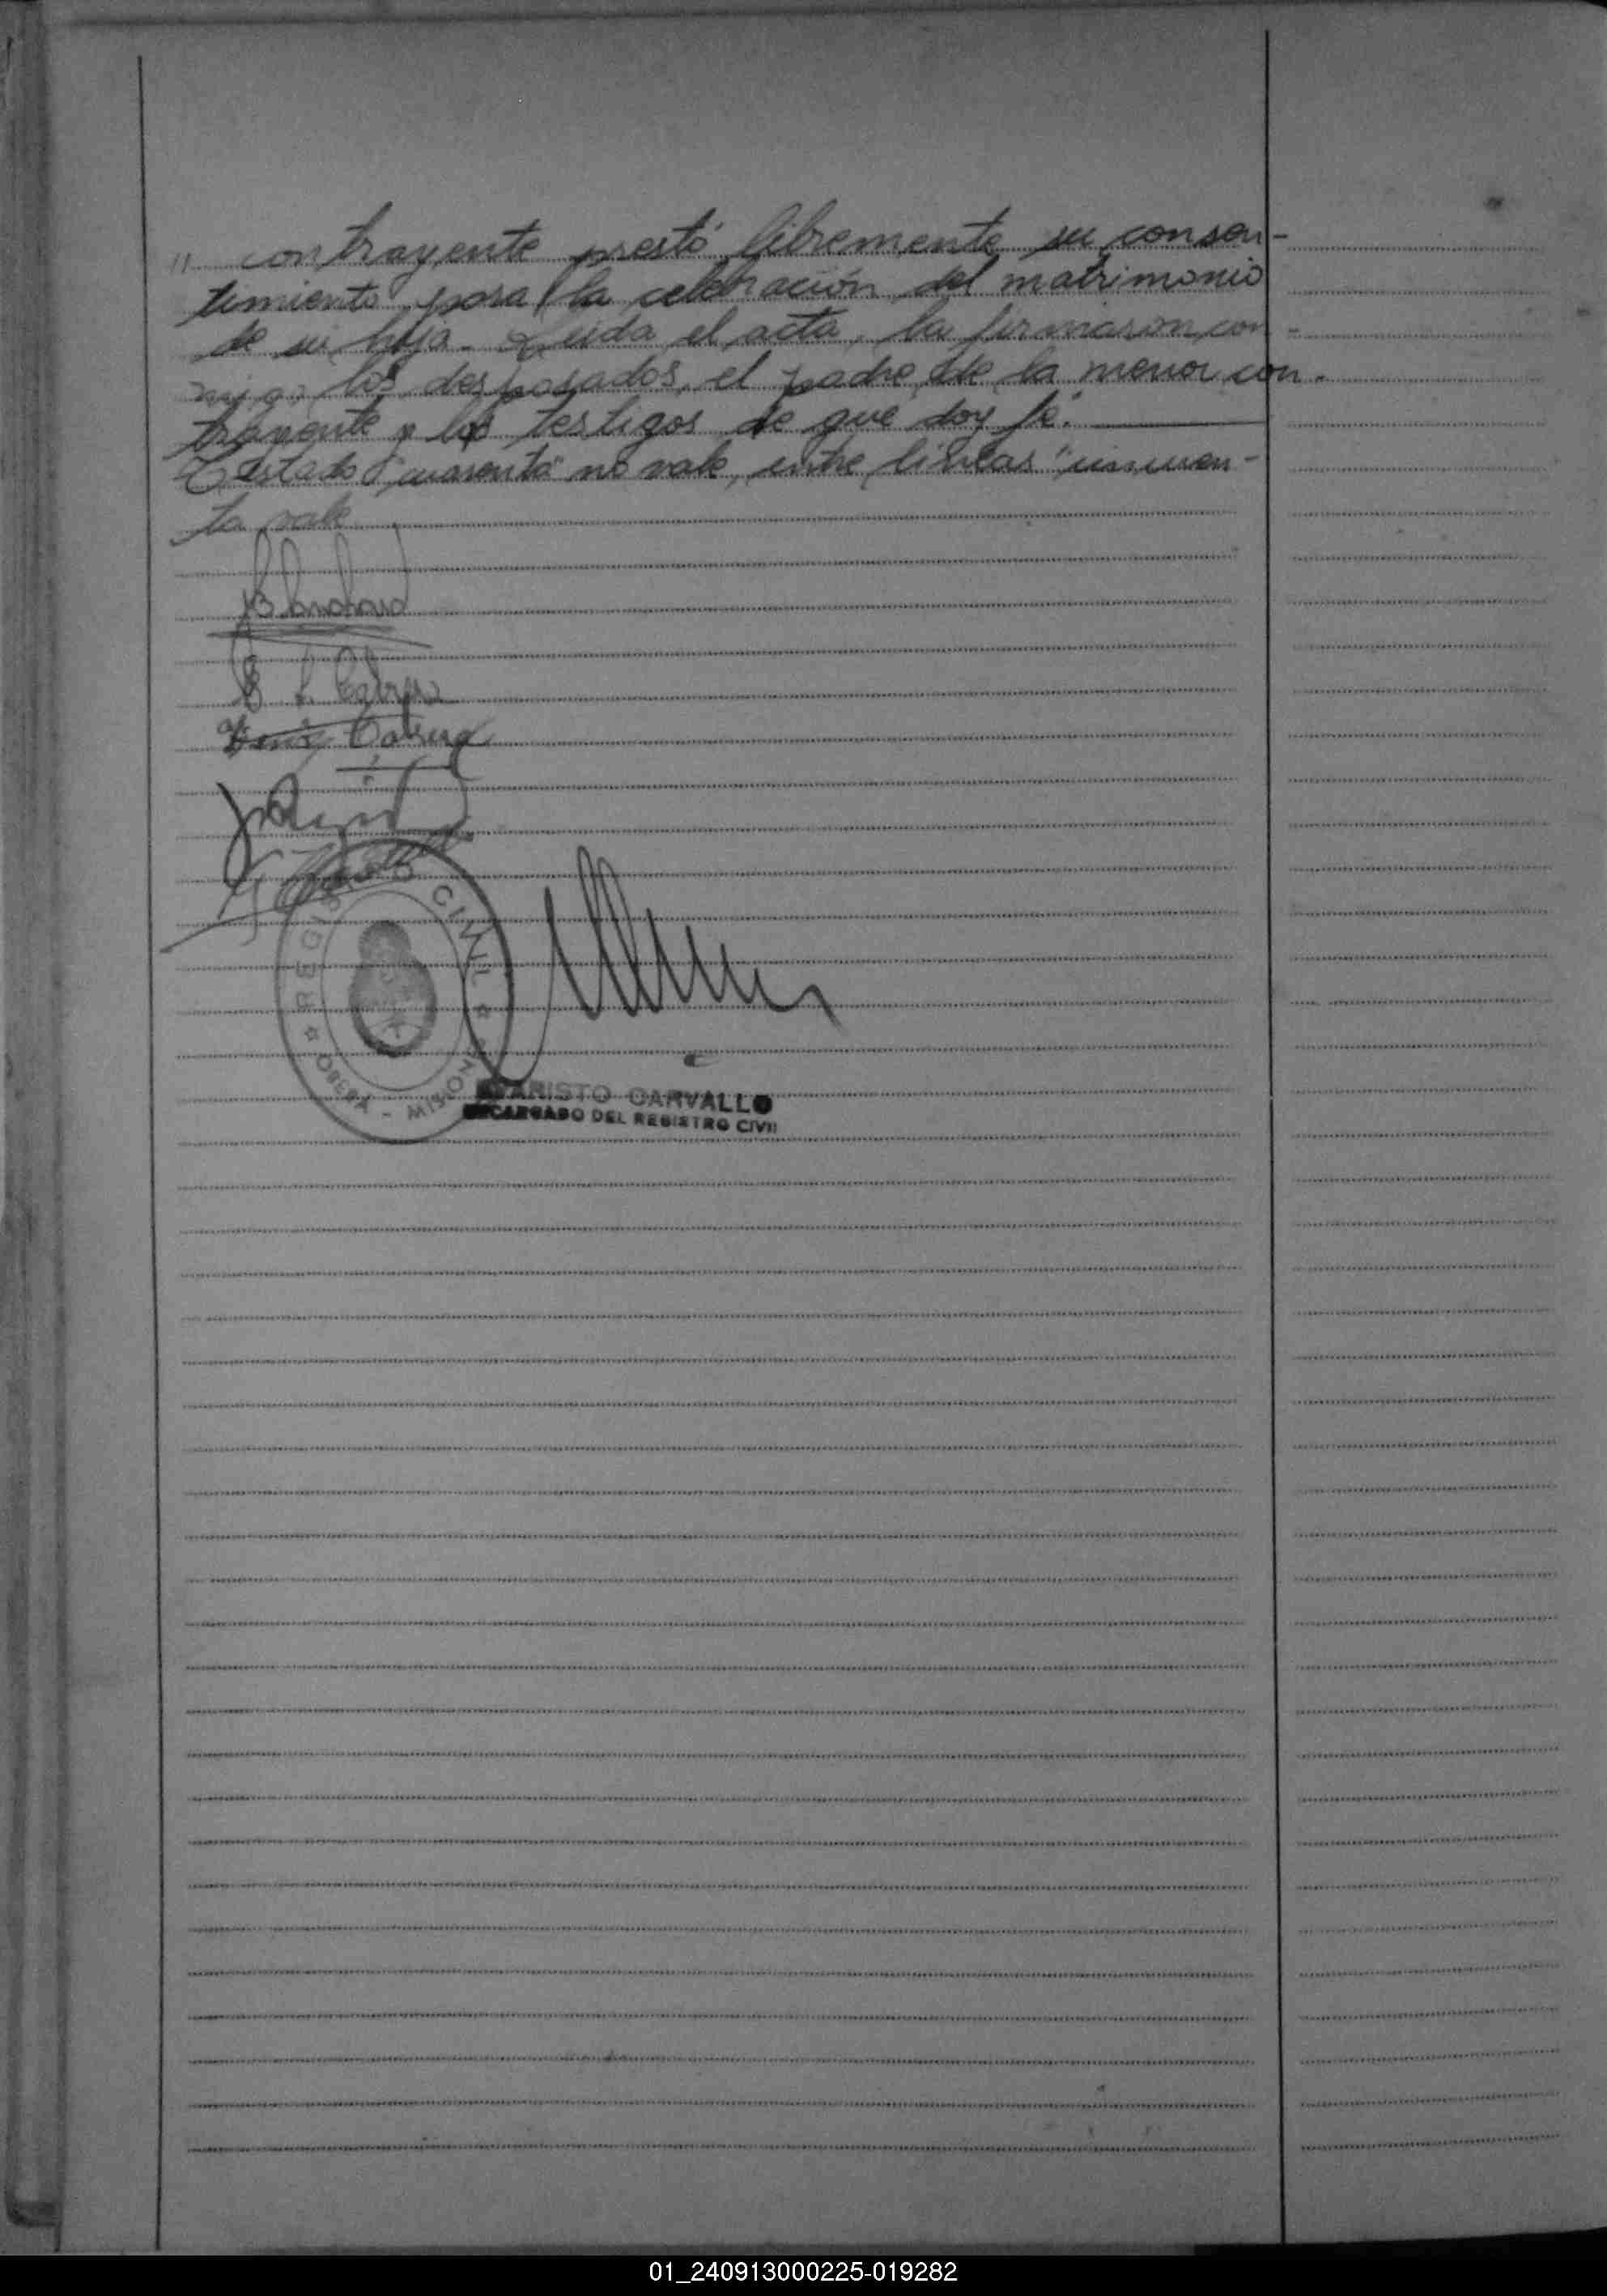 " contrayente prestó libremente su consen-
timiento para la celebración del matrimonio
de su hija. Leída el acta, la firmaron con-
migo, los desposados, el padre de la menor con-
trayente y los testigos de que doy fé.
Testado "cuarenta" no vale, entre líneas "cincuen-
ta vale
Cabrera
REGISTRO CIVIL ☆ MISIONES - OBERA ☆
EVARISTO CARVALLO
ENCARGADO DEL REGISTRO CIVIL
01_240913000225-019282